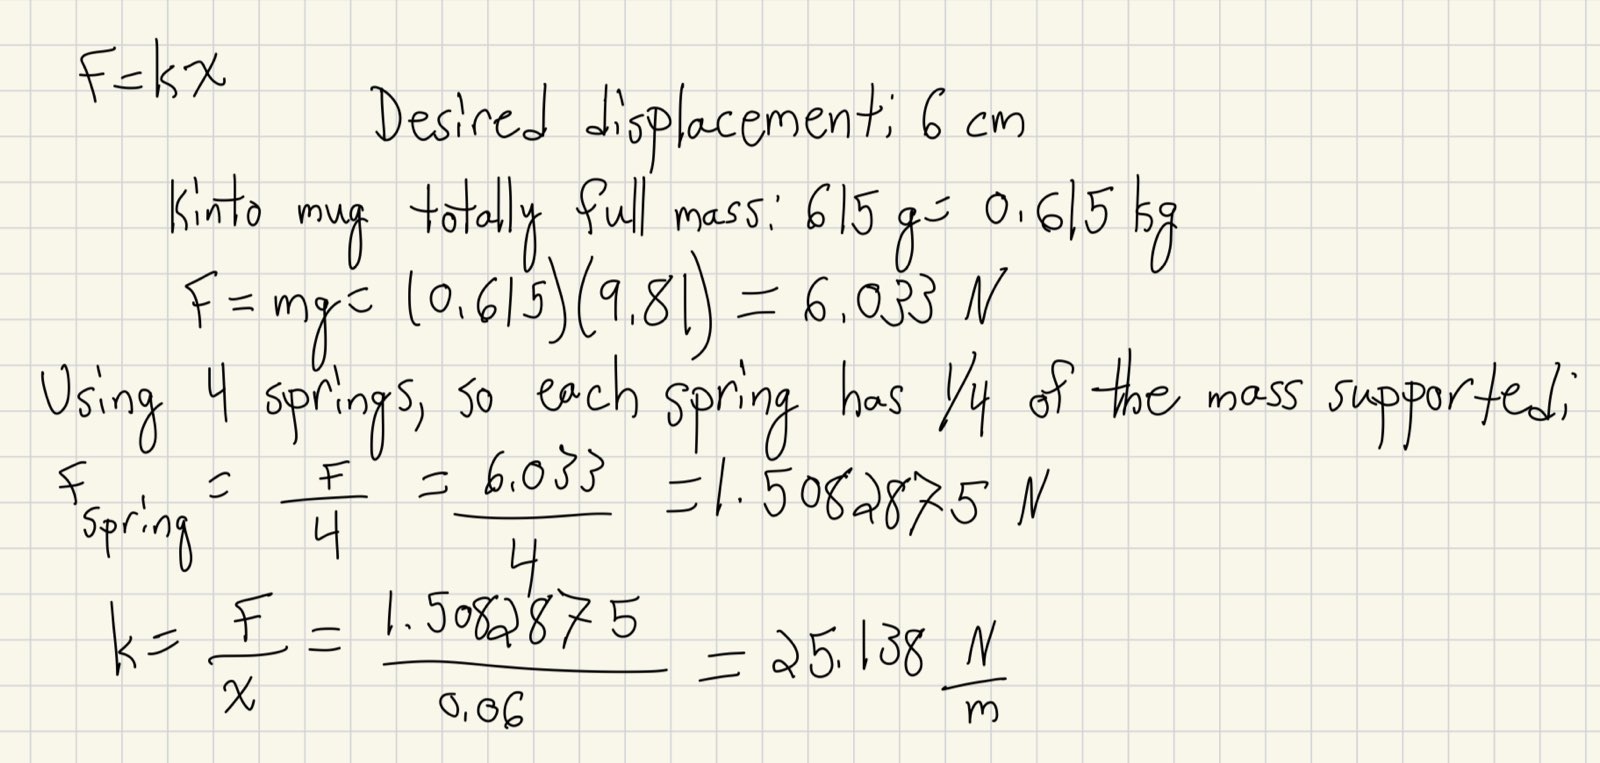 F=kx
Desired displacement: 6 cm
Kinto mug totally full mass: 615 g= 0.615 kg
F = mg= (0.615)(9.81) = 6.033 N
Using 4 springs, so each spring has 1/4 of the mass supported:
F_spring = F/4 = 6.033/4 =1.5082875 N
k= F/x = 1.5082875/0.06 = 25.138 N/m